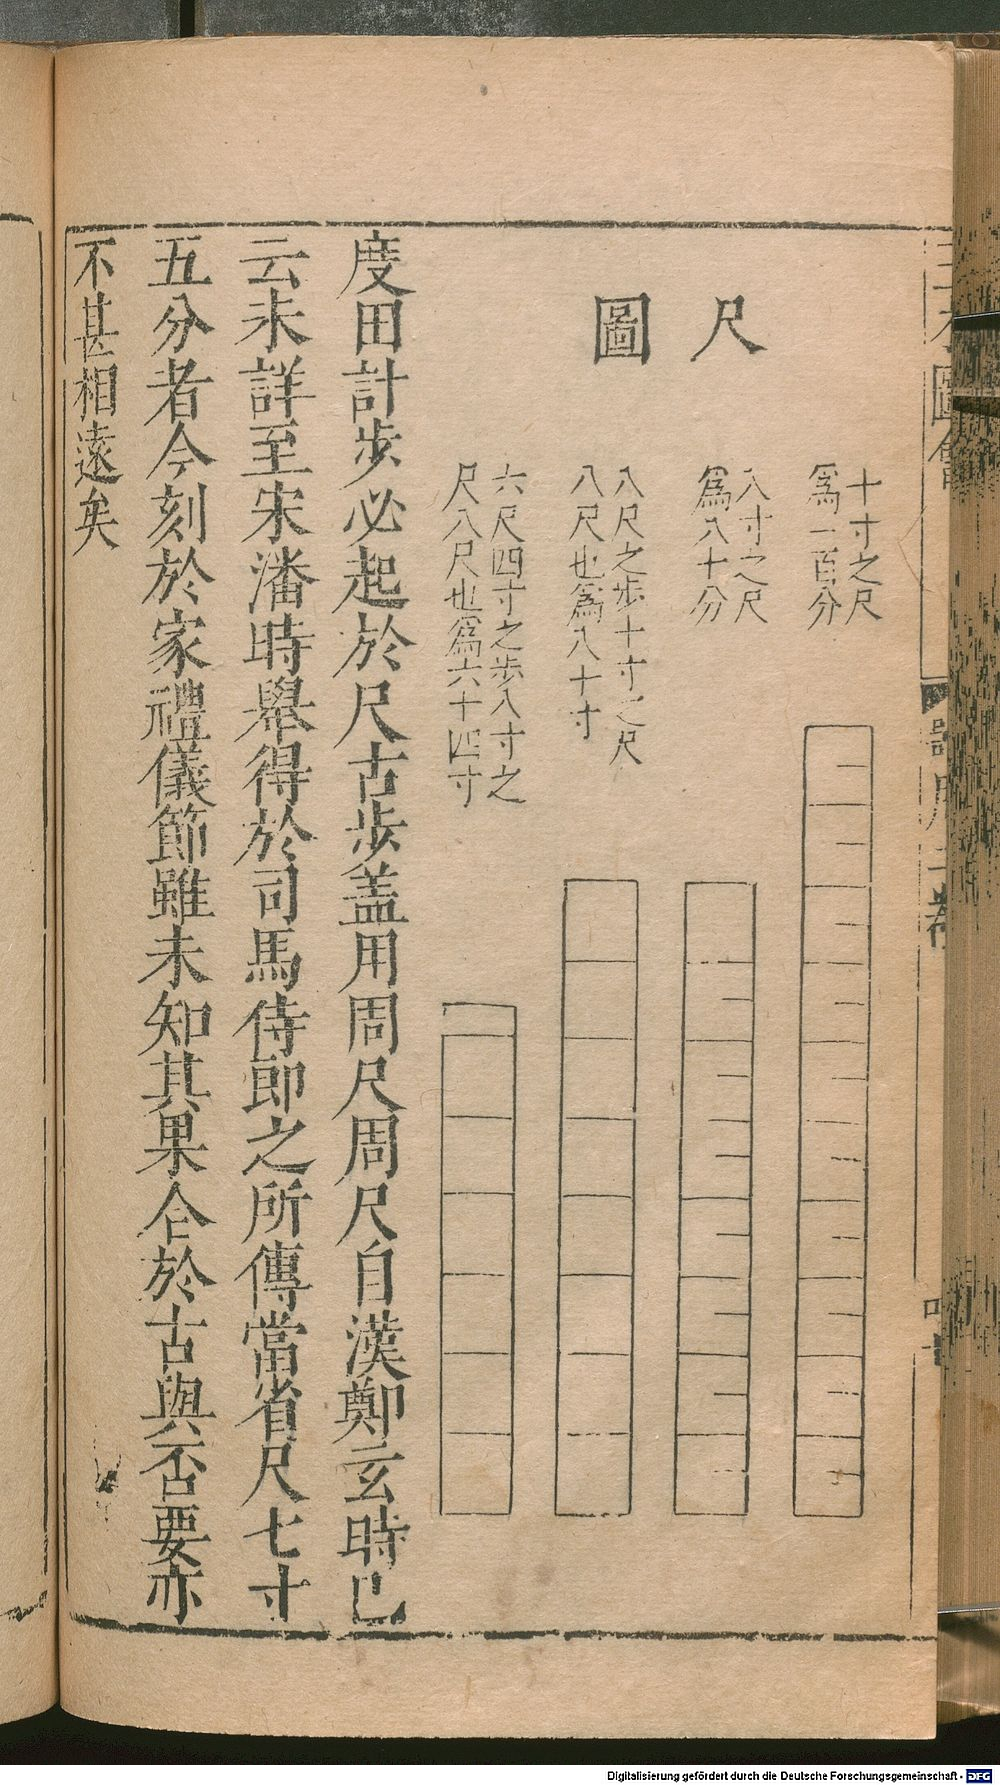 尺圖
十寸之尺
為一百分
八寸之尺
爲八十分
八尺之步十寸之尺
八尺也爲八十寸
六尺四寸之步八寸之
尺八尺也爲六十四寸
度田計步必起於尺古步蓋用周尺周尺自漢鄭玄時已
云未詳至宋潘時舉得於司馬侍郎之所傳當省尺七寸
五分者今刻於家禮儀節雖未知其果合於古與否要亦
不甚相遠矣
Digitalisierung gefördert durch die Deutsche Forschungsgemeinschaft - DFG